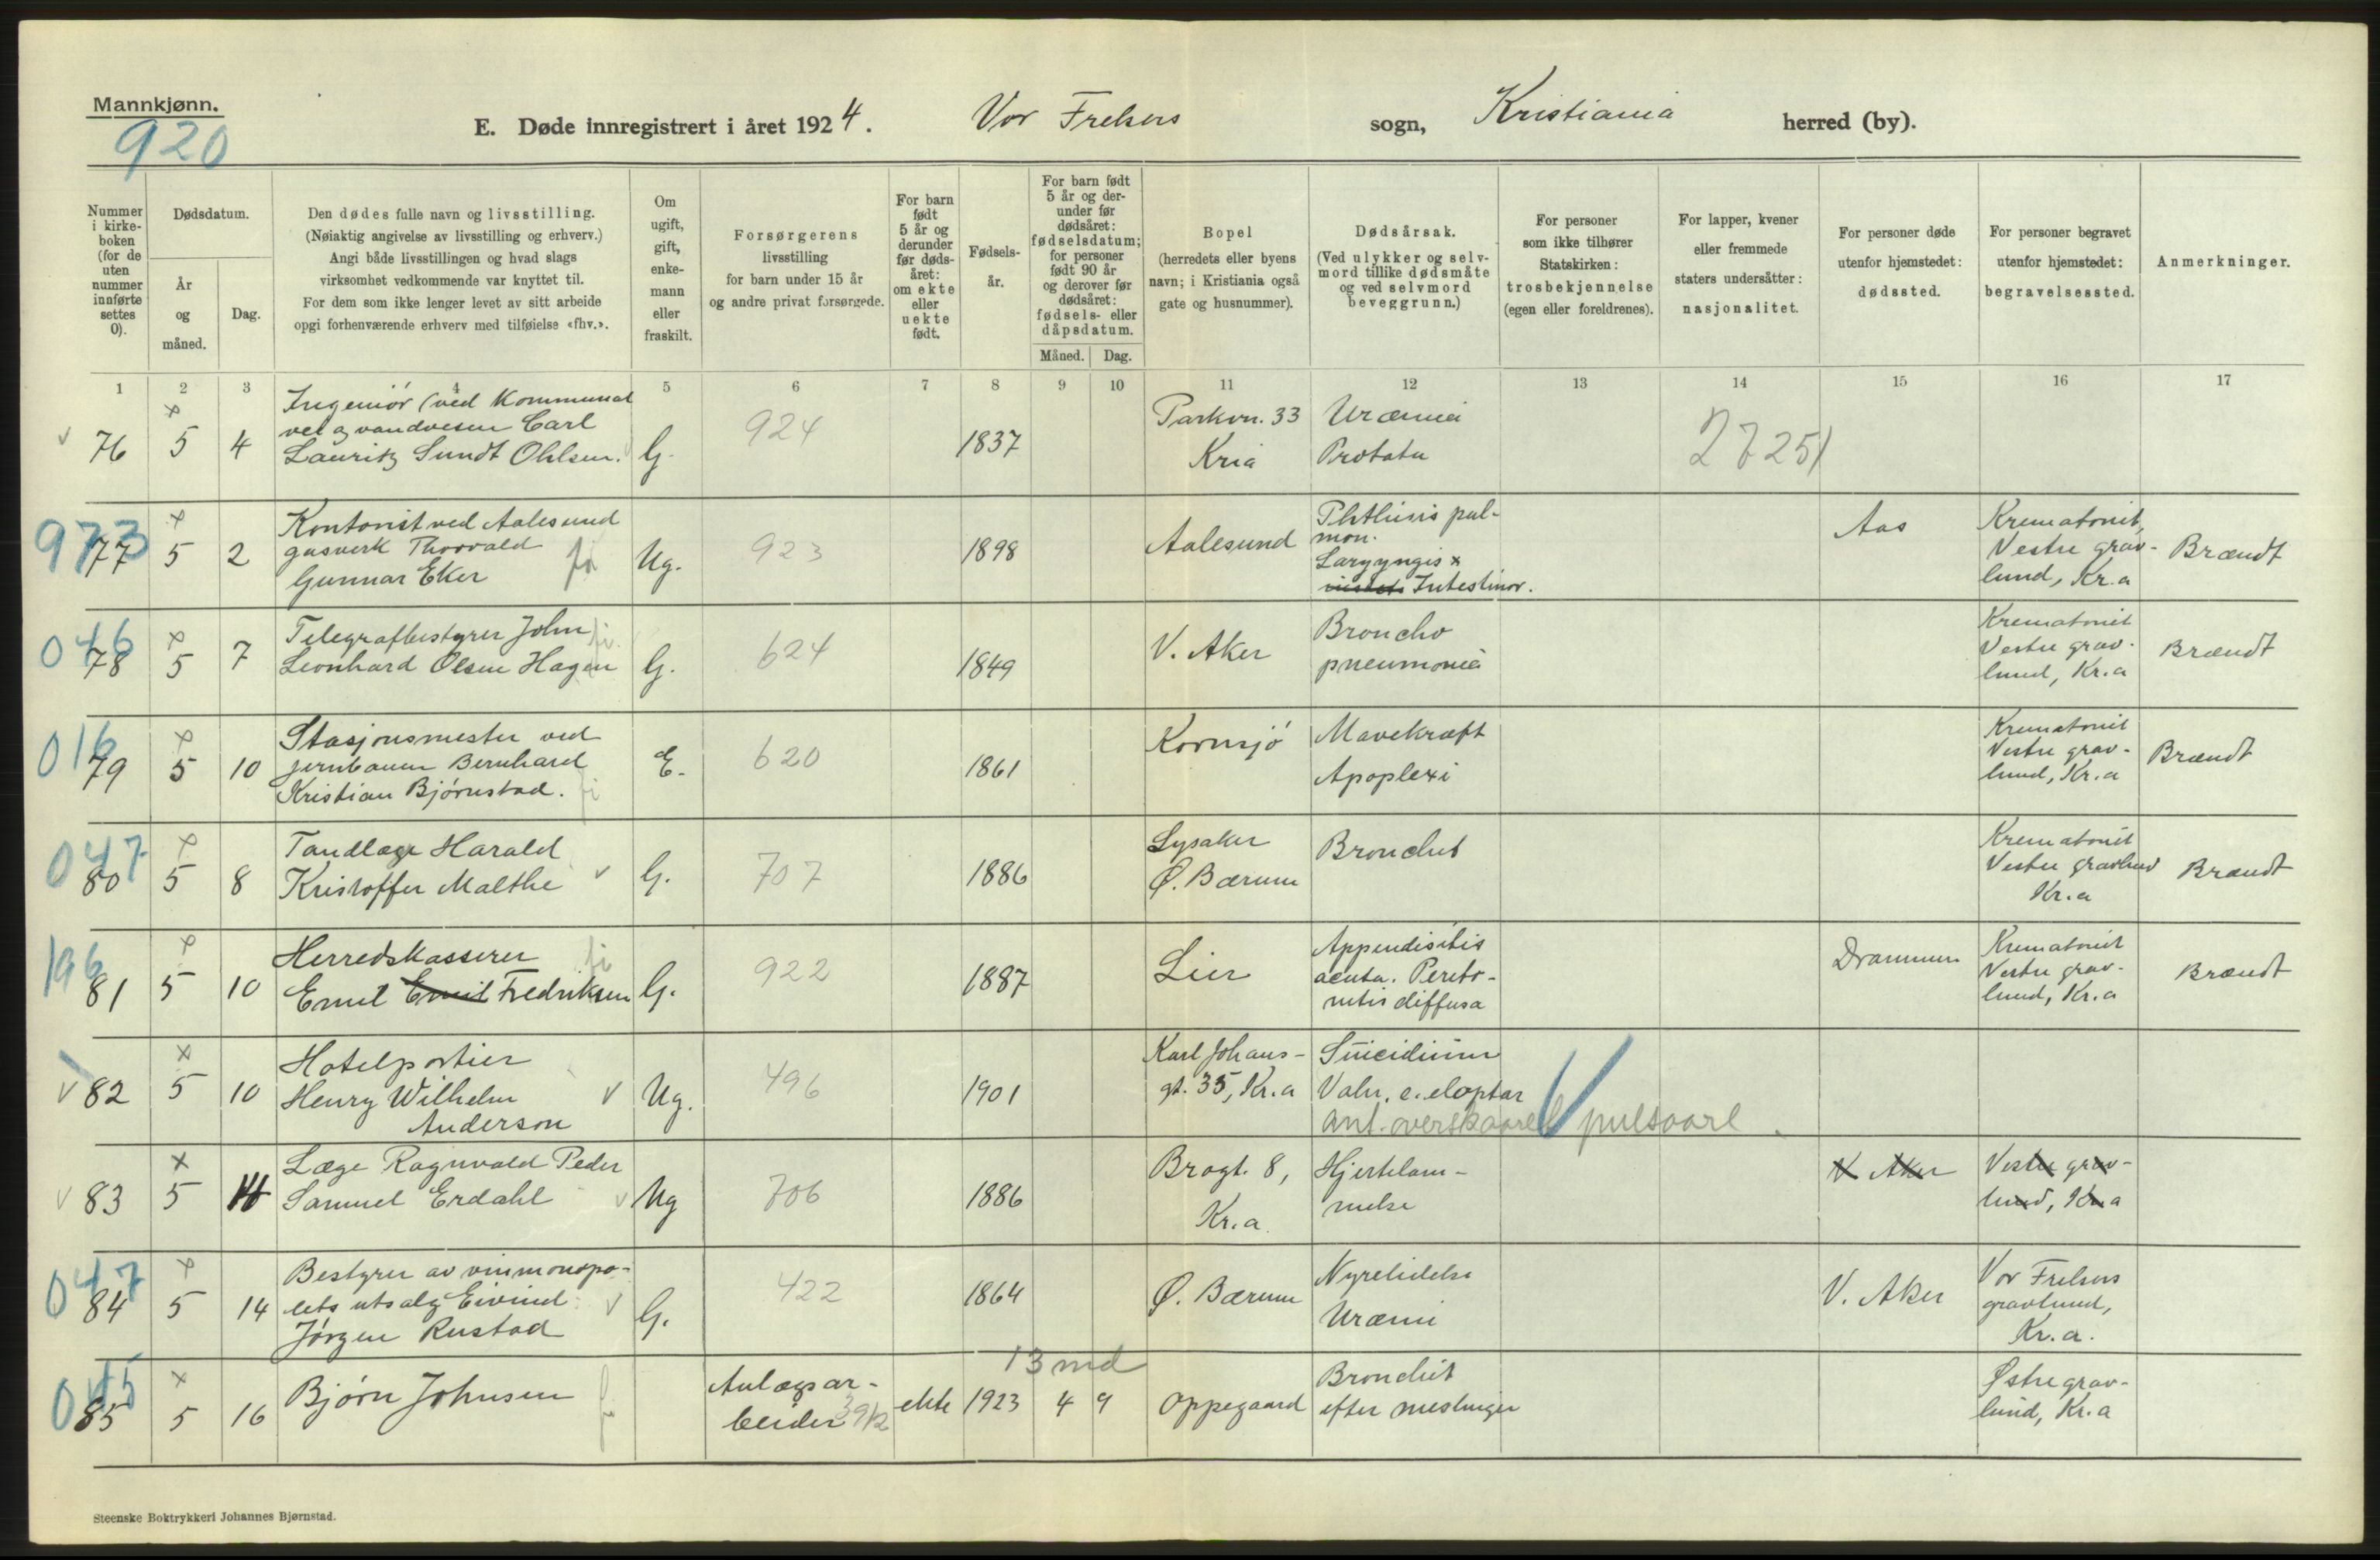 Mannkjønn.
920
E. Døde innregistrert i året 1924. Vor Frelsers sogn, Kristiania herred (by).
Nummer i kirkeboken (for de uten nummer innførte settes 0).
Dødsdatum.
År og måned.
Dag.
Den dødes fulle navn og livsstilling.
(Nøiaktig angivelse av livsstilling og erhverv.)
Angi både livsstillingen og hvad slags
virksomhet vedkommende var knyttet til.
For dem som ikke lenger levet av sitt arbeide
opgi forhenværende erhverv med tilføielse «fhv.».
Om ugift, gift, enkemann eller fraskilt.
Forsørgerens
livsstilling
for barn under 15 år
og andre privat forsørgede.
For barn født 5 år og derunder før dødsåret: om ekte eller uekte født.
Fødselsår.
For barn født 5 år og derunder før dødsåret: fødselsdatum; for personer født 90 år og derover før dødsåret: fødsels- eller dåpsdatum.
Måned. Dag.
Bopel
(herredets eller byens
navn; i Kristiania også
gate og husnummer).
Dødsårsak.
(Ved ulykker og selvmord tillike dødsmåte
og ved selvmord
beveggrunn.)
For personer
som ikke tilhører
Statskirken:
trosbekjennelse
(egen eller foreldrenes).
For lapper, kvener
eller fremmede
staters undersåtter:
nasjonalitet.
For personer døde
utenfor hjemstedet:
dødssted.
For personer begravet
utenfor hjemstedet:
begravelsessted.
Anmerkninger.
1 2 3 4 5 6 7 8 9 10 11 12 13 14 15 16 17
v 76 x 5 4
Ingeniør (ved Kommunal
vei og vandvesen Carl
Lauritz Sundt Ohlsen.
G. 924 1837
Parkvn. 33
Kria
Uræmia
Protata
27251
973
77 x 5 2
Kontorist ved Aalesund
gasverk Thorvald
Gunnar Eker
Ug. 923 1898 Aalesund
Phthisis pul-
mon.
Laryngis x
Intestinor.
Aas
Krematoriet,
Vestre grav-
lund, Kr.a
Brændt
046
78 x 5 7
Telegrafbestyrer John
Leonhard Olsen Hagen
G. 624 1849 V. Aker
Broncho
pneumonia
Krematoriet
Vestre grav-
lund, Kr.a
Brændt
016
79 x 5 10
Stasjonsmester ved
jernbanen Bernhard
Kristian Bjørnstad.
E. 620 1861 Kornsjø
Mavekræft
Apoplexi
Krematoriet
Vestre grav-
lund, Kr.a
Brændt
047
80 x 5 8
Tandlæge Harald
Kristoffer Malthe v
G. 707 1886
Lysaker
Ø. Bærum
Bronchit
Krematoriet
Vestre gravlund
Kr.a
Brændt
196
81 x 5 10
Herredskasserer
Emil Emil Fredriksen
G. 922 1887 Lier
Appendisitis
acuta. Perito-
nitis diffusa
Drammen
Krematoriet
Vestre grav-
lund, Kr.a
Brændt
v 82 x 5 10
Hotelportier
Henry Wilhelm
Anderson
v Ug. 496 1901
Karl Johans-
gt. 35, Kr.a
Suicidium
Ant. overskaaret pulsaare.
v 83 x 5 14
Læge Ragnvald Peder
Samuel Erdahl
v Ug 706 1886
Brogt. 8,
Kr.a
Hjertelam-
melse
V. Aker
Vestre grav-
lund, Kr.a
047
84 x 5 14
Bestyrer av vinmonopo-
lets utsalg Eivind
Jørgen Rustad
v G. 422 1864 Ø. Bærum
Nyrelidelse
Uræmi
V. Aker
Vor Frelsers
gravlund,
Kr.a.
045
85 x 5 16
Bjørn Johnsen
Anlægsar-
beider
ekte 1923 4 9
13 md
Oppegaard
Bronchit
efter meslinger
Østre grav-
lund, Kr.a
Steenske Boktrykkeri Johannes Bjørnstad.